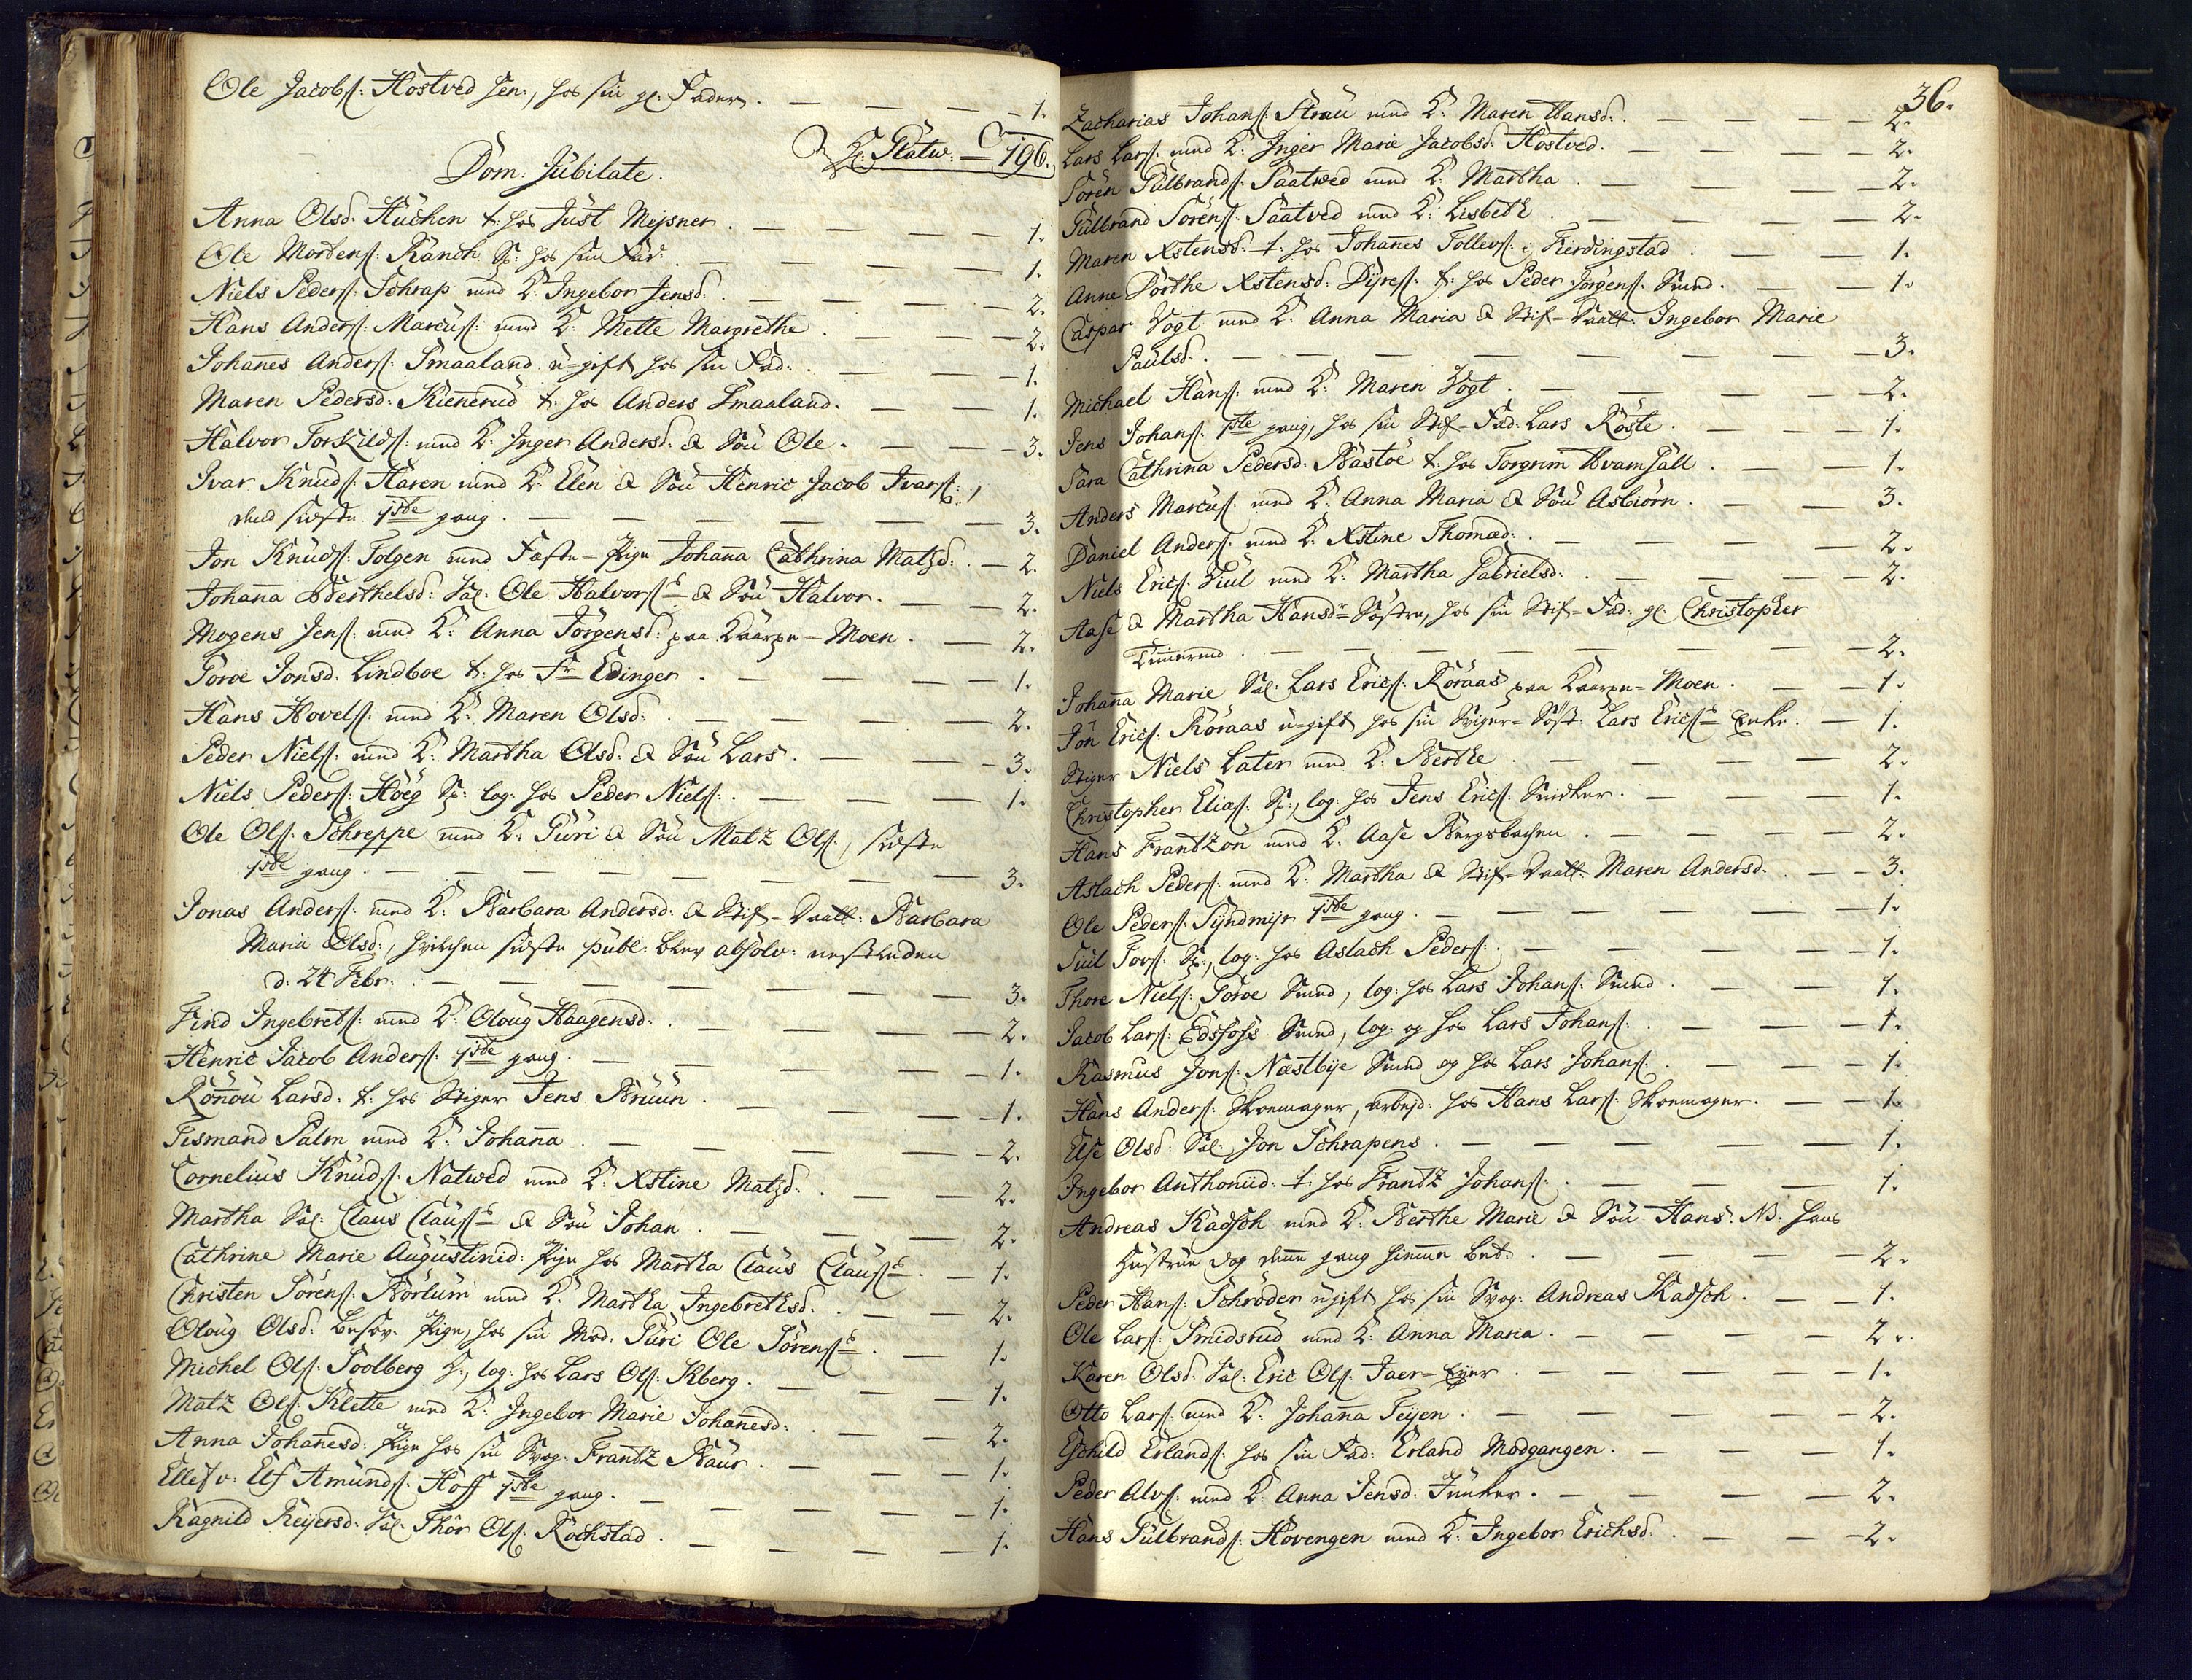 Ole Jacobs: Hostved sen:, hos sin gl. Fader. — — — 1.
196.
Dom: Jubilate.
Anna Olsd. Kuchen t: hos Just Meysner. — — — 1.
Ole Mortens: Ranch S: hos sin Fad: — — — 1.
Niels Peders: Schrap med K: Ingebor Jensd: — — — 2.
Hans Anders: Marcus: med K: Mette Margrethe. — — — 2.
Johanes Anders: Smaaland u-gift hos sin Fad: — — — 1.
Maren Pedersd: Kienerud t: hos Anders Smaaland. — — 1.
Halvor Torkilds: med K: Inger Andersd: & Sön Ole. — — 3.
Ivar Knuds: Haren med K: Elen & Sön Henric Jacob Ivars:,
dend sidste 1ste gang. — — — 3.
Jon Knuds: Folgen med Faste-Pige Johana Cathrina Matzd: — 2.
Johana Berthelsd: Sal: Ole Halvors: & Sön Halvor. — — 2.
Mogens Jens: med K: Anna Jörgensd: paa Kaarpe-Moen. — 2.
Goroe Jonsd. Lindboe t: hos Fr Edinger. — — 1.
Hans Hovels: med K: Maren Olsd: — — — 2.
Peder Niels: med K: Martha Olsd: & Sön Lars. — — 3.
Niels Peders: Höeg S: log: hos Peder Niels: — — — 1.
Ole Ols: Schreppe med K: Guri & Sön Matz Ols:, sidste
1ste gang. — — — 3.
Jonas Anders: med K: Barbara Andersd: & Stif-Datt: Barbara
Maria Olsd:, hvilchen sidste publ: blev absolv: nestleden
d: 24 Febr: — — — 3.
Find Ingebrets: med K: Oloug Haagensd: — — — 2.
Henric Jacob Anders: 1ste gang. — — — 1.
Rönou Larsd: t: hos Stiger Jens Bruun. — — — 1.
Gismand Palm med K: Johana. — — — 2.
Cornelius Knuds: Natwed med K: Xstine Matzd: — — 2.
Martha Sal: Claus Claus: & Sön Johan. — — — 2.
Cathrine Marie Augustinid: Pige hos Martha Claus Claus: — 1.
Christen Sörens: Börlum med K: Martha Ingebrethsd: — — 2.
Oloug Olsd: besov: Pige, hos sin Mod: Guri Ole Sörens: — 1.
Michel Ols: Soolberg S:, log: hos Lars Ols: Kberg. — — 1.
Matz Ols: Klette med K: Ingebor Marie Johanesd: — — 2.
Anna Johanesd: Pige hos sin Svog: Frantz Baur. — — 1.
Ellef v: Elf Amunds: Hoff 1ste gang. — — — 1.
Ragnild Reijersd: Sal: Thor Ols: Rochstad. — — — 1.
36.
Zacharias Johans: Strau med K: Maren Hansd: — — — 2.
Lars Lars: med K: Inger Marie Jacobsd: Hostved. — — — 2.
Sören Gulbrands: Saatwed med K: Martha. — — — 2.
Gulbrand Sörens: Saatved med K: Lisbeth. — — — 2.
Maren Xstensd: t: hos Johanes Tollevs: i Fierdingstad. — — 1.
Anne Dorthe Xstensd: Dyres: t: hos Peder Jörgens: Smed. — — 1.
Caspar Vogt med K: Anna Maria & Stif-Datt: Ingebor Marie
Paulsd: — — — 3.
Michael Hans: med K: Maren Vogt. — — — 2.
Jens Johans: 1ste gang, hos sin Stif-Fad: Lars Röste. — — — 1.
Sara Cathrina Pedersd: Bastöe t: hos Torgrim Hvamsall. — — 1.
Anders Marcus: med K: Anna Maria & Sön Asbiörn. — — 3.
Daniel Anders: med K: Xstine Thomæd: — — — 2.
Niels Erics: Giul med K: Martha Gabrielsd: — — — 2.
Aase & Martha Hansdr Söstre, hos sin Stif-Fad: gl: Christopher
— — — 2.
Johana Marie Sal: Lars Erics: Röraas paa Kaarpe-Moen. — — 1.
Jon Erics: Röraas u-gift hos sin Sviger-Söst: Lars Erics: Enke. — 1.
Stiger Niels Later med K: Berthe. — — — 2.
Christopher Elias: S:, log: hos Jens Erics: Snidker. — — — 1.
Hans Frantzon med K: Aase Bergsbachen. — — — 2.
Aslach Peders: med K: Martha & Stif-Datt: Maren Andersd: — — 3.
Ole Peders: Syndmijr 1ste gang. — — — 1.
Siul Tors: S:, log: hos Aslach Peders: — — — 1.
Thore Niels: Goroe Smed, log: hos Lars Johans: Smed. — — 1.
Jacob Lars: Edsfoss Smed, log: og hos Lars Johans: — — — 1.
Rasmus Jons: Næstbye Smed og hos Lars Johans: — — — 1.
Hans Anders: Skoemager, arbejd: hos Hans Lars: Skoemager. — — 1.
Else Olsd: Sal: Jon Schrapens. — — — 1.
Ingebor Anthoniid: t: hos Frantz Johans: — — — 1.
Andreas Radsch med K: Berthe Marie & Sön Hans: NB: hans
Hustrue dog denne gang hiemme bet: — — — 2.
Peder Hans: Schröder ugift hos sin Svog: Andreas Radsch. — — 1.
Ole Lars: Smidsrud med K: Anna Maria. — — — 2.
Karen Olsd: Sal: Eric Ols: Jaer-Eyer — — — 1.
Otto Lars: med K: Johana Teijen. — — — 2.
Eschild Erlands: hos sin Fad: Erland Modgangen. — — — 1.
Peder Alvs: med K: Anna Jensd: Junker. — — — 2.
Hans Gulbrands: Hovengen med K: Ingebor Erichsd: — — — 2.